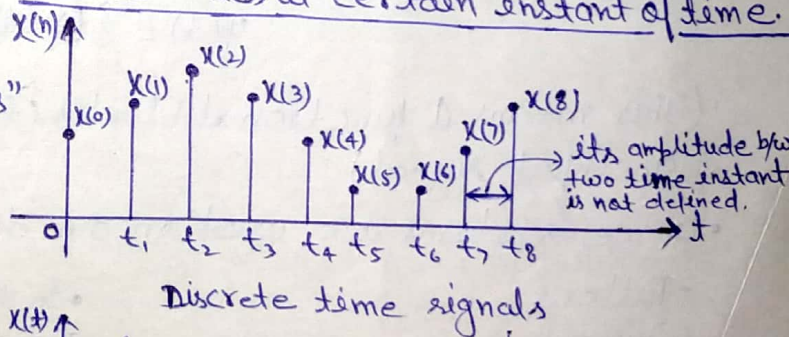 certain instant of time.
X(n)
X(0)
X(1)
X(2)
X(3)
X(4)
X(5)
X(6)
X(7)
X(8)
its amplitude b/w
two time instant
is not defined.
0 t₁ t₂ t₃ t₄ t₅ t₆ t₇ t₈ t
Discrete time signals
X(t)